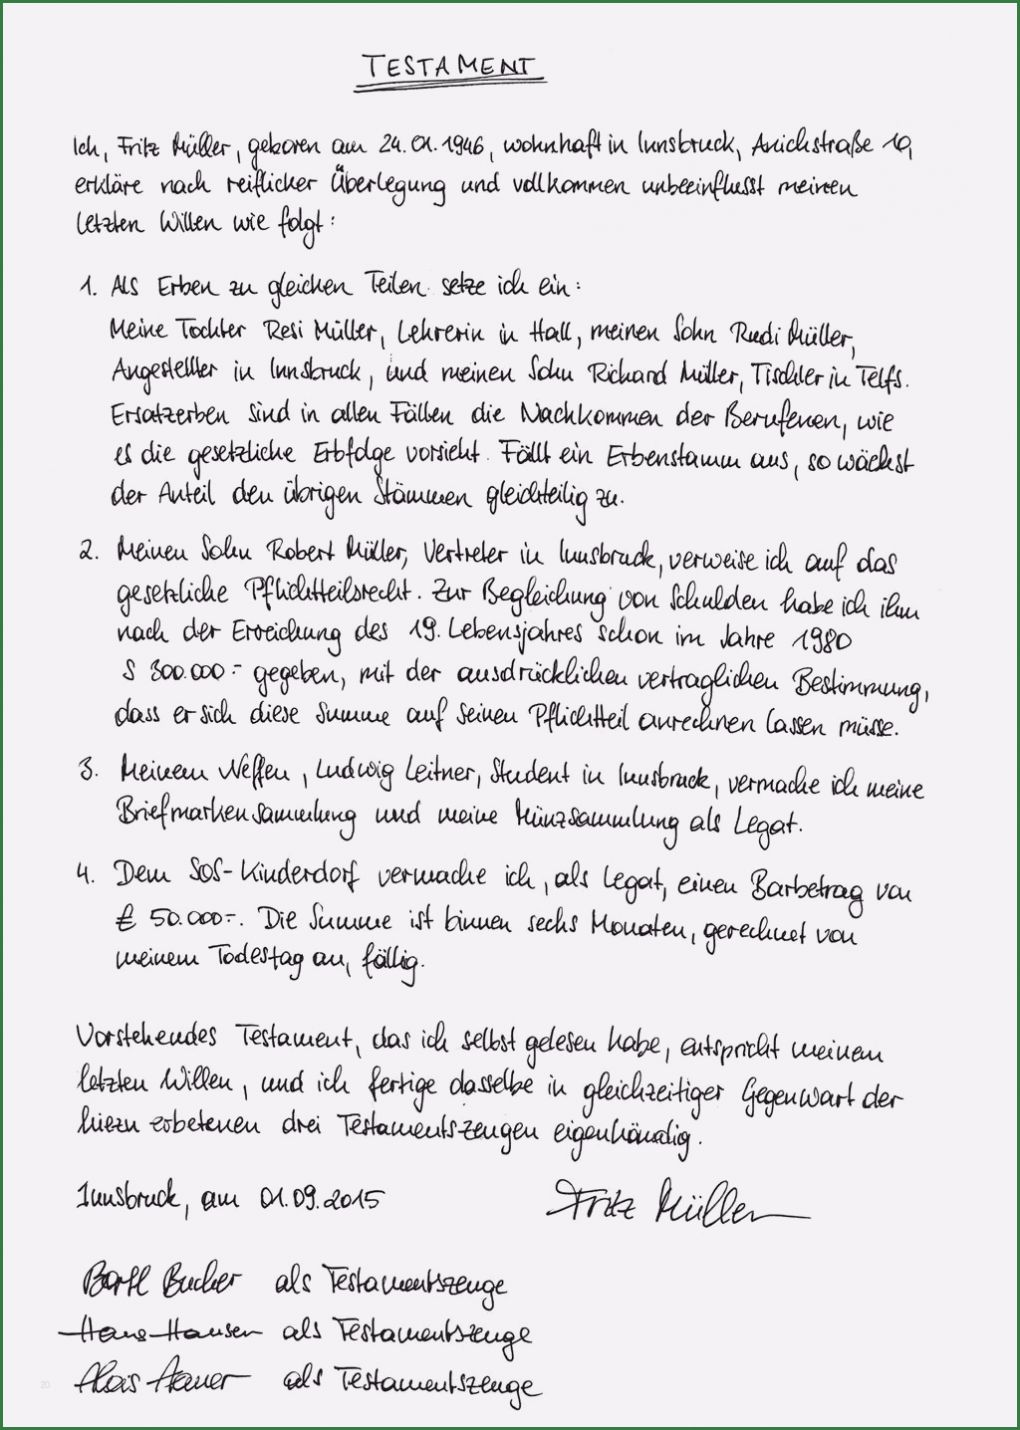 TESTAMENT
Ich, Fritz Müller, geboren am 24.01.1946, wohnhaft in Innsbruck, Anichstraße 19,
erkläre nach reiflicher Überlegung und vollkommen unbeeinflusst meinen
letzten Willen wie folgt:
1. Als Erben zu gleichen Teilen setze ich ein:
Meine Tochter Resi Müller, Lehrerin in Hall, meinen Sohn Rudi Müller,
Angestellter in Innsbruck, und meinen Sohn Richard Müller, Tischler in Telfs.
Ersatzerben sind in allen Fällen die Nachkommen der Berufenen, wie
es die gesetzliche Erbfolge vorsieht. Fällt ein Erbenstamm aus, so wächst
der Anteil den übrigen Stämmen gleichteilig zu.
2. Meinen Sohn Robert Müller, Vertreter in Innsbruck, verweise ich auf das
gesetzliche Pflichtteilsrecht. Zur Begleichung von Schulden habe ich ihm
nach der Erreichung des 19. Lebensjahres schon im Jahre 1980
S 300.000.- gegeben, mit der ausdrücklichen vertraglichen Bestimmung,
dass er sich diese Summe auf seinen Pflichtteil anrechnen lassen müsse.
3. Meinem Neffen, Ludwig Leitner, Student in Innsbruck, vermache ich meine
Briefmarkensammlung und meine Münzsammlung als Legat.
4. Dem SOS-Kinderdorf vermache ich, als Legat, einen Barbetrag von
€ 50.000.-. Die Summe ist binnen sechs Monaten, gerechnet von
meinem Todestag an, fällig.
Vorstehendes Testament, das ich selbst gelesen habe, entspricht meinem
letzten Willen, und ich fertige dasselbe in gleichzeitiger Gegenwart der
hiezu erbetenen drei Testamentszeugen eigenhändig.
Innsbruck, am 01.09.2015 Fritz Müller
Bartl Bucher als Testamentszeuge
Hans Hauser als Testamentszeuge
20 Alois Aauer als Testamentszeuge